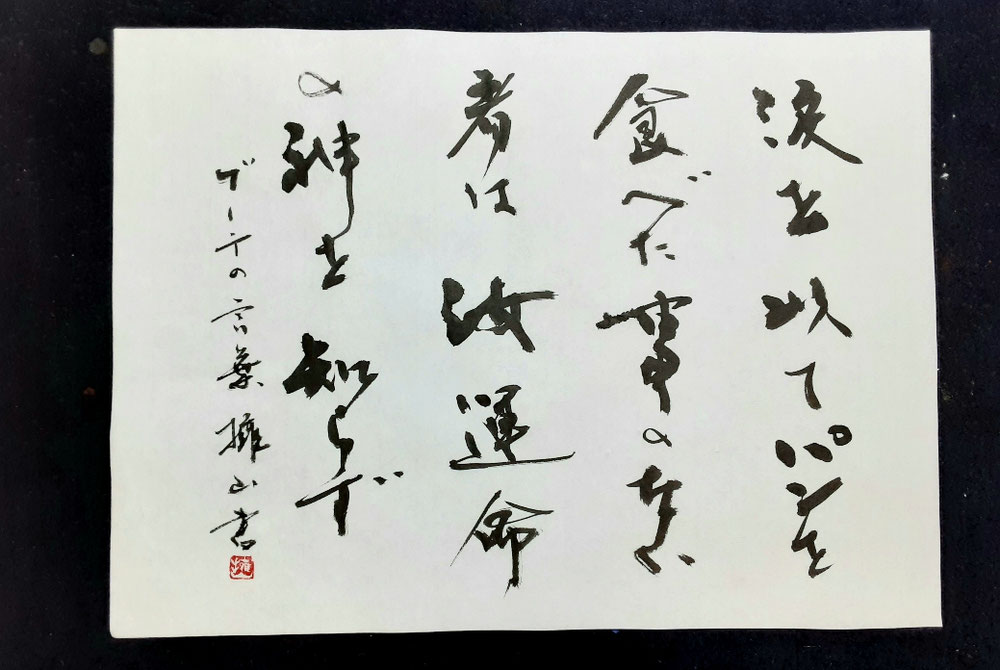 涙を以てパンを
食べた事のない
者は汝運命
の神を知らず
ゲーテの言葉 擁山書